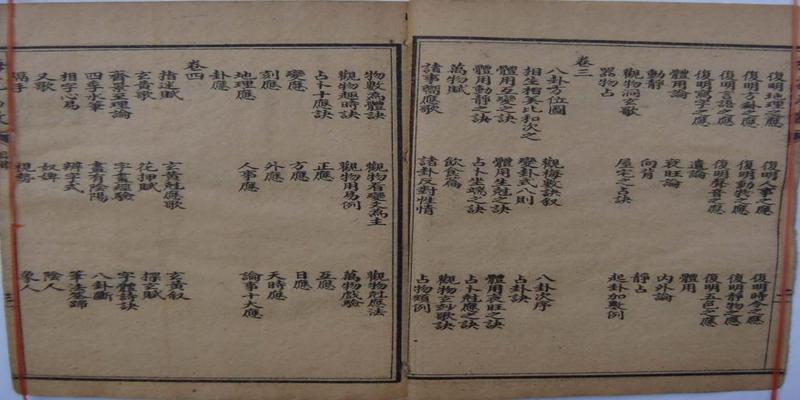 復明地理之應 復明人事之應 復明時令之應
復明方卦之應 復明動物之應 復明靜物之應
復明言語之應 復明聲音之應 復明五色之應
復明寫字之應 遺論 體用
體用論 衰旺論 內外論
動靜 向背 靜占
觀物洞玄歌 屋宅之占訣 起卦加數例
器物占
卷三
八卦方位圖 觀梅數訣叙 八卦次序
相生相 比和次之 變卦式八則 占卦訣
體用互變之訣 體用生尅之訣 體用衰旺之訣
體用動靜之訣 占卜坐端之訣 占卜尅應之訣
萬物賦 飲食篇 觀物玄妙歌訣
諸事響應歌 諸卦反對性情 占物類例
物數為體訣 觀物看變爻為主 觀物尅應法
觀物趣時訣 觀物用易例 萬物戲驗
占卜十應訣 正應 互應
變應 方應 日應
刻應 外應 天時應
地理應 人事應 論事十大應
卦應
卷四
指迷賦 玄黃尅應歌 玄黃叙
玄黃歌 花押賦 探玄賦
齊景至理論 字畫經驗 字體詩訣
四季水筆 畫有陰陽 八卦斷
相字心易 辨字式 筆法筌蹄
又歌 奴婢 陰人